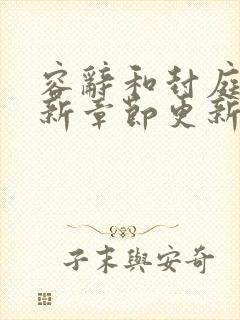 容辭和封庭
新章節更新
子末與安奇